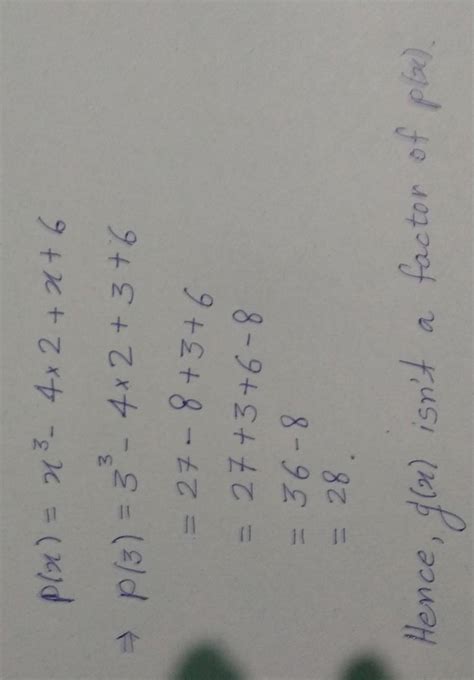 p(x) = x³ - 4×2 + x + 6
⇒ p(3) = 3³ - 4×2 + 3 + 6
= 27 - 8 + 3 + 6
= 27 + 3 + 6 - 8
= 36 - 8
= 28.
Hence, g(x) isn't a factor of p(x).